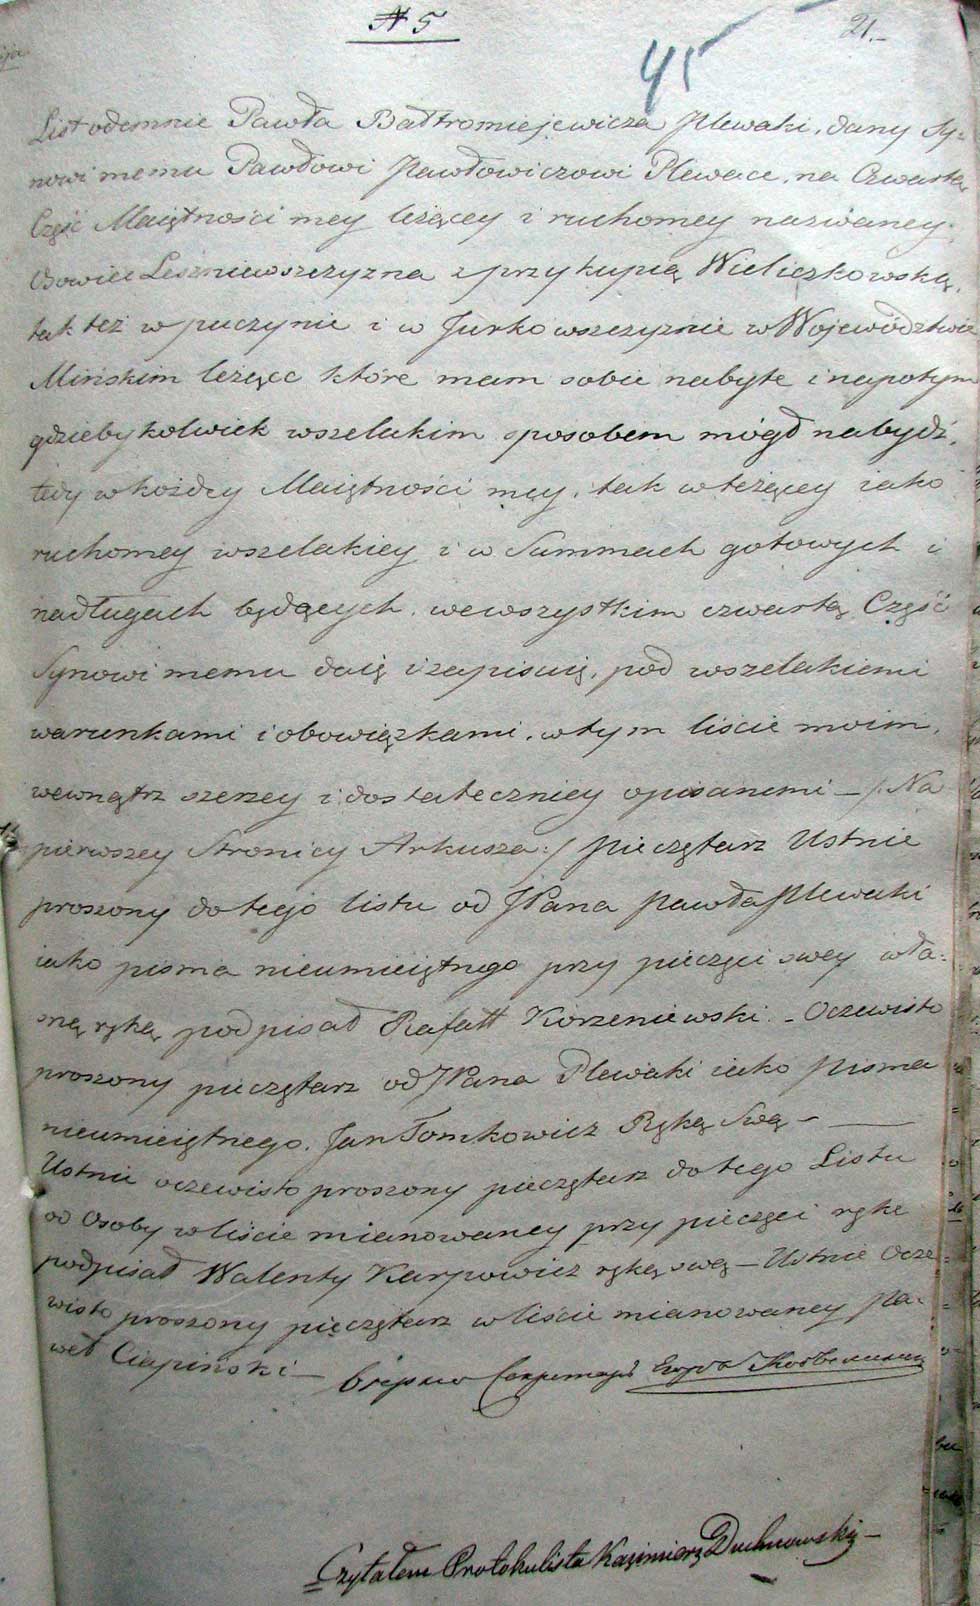 N 5
21.
45
List odemnie Pawła Bałtromiejewicza Plewaki, dany Sy=
nowi memu Pawłowi Pawłowiczowi Plewace, na Czwartą
Część Maiętności mey leżącey i ruchomey nazwaney
Osowiec Leśniewszczyzna z przykupią Wieliczkowską,
tak też w puczynie i w Jurkowszczyznie w Województwie
Mińskim leżące które mam sobie nabyte i napotym
gdziebykolwiek wszelakim sposobem mógł nabydź,
tedy w każdey Maiętności mey, tak w leżącey iako
ruchomey wszelakiey i w Summach gotowych i
nadługach będących, wewszystkim czwartą Część
Synowi memu daię i zapisuię, pod wszelakiemi
warunkami i obowiązkami, w tym liście moim,
wewnątrz szerzey i dostateczniey opisanemi — /: Na
pierwszey Stronicy Arkusza :/ Pieczętarz Ustnie
proszony do tego listu od JPana Pawła Plewaki
iako pisma nieumieiętnego przy pieczęci swey wła=
sną ręką podpisał Rafałł Korzeniewski. — Oczewisto
proszony pieczętarz od JPana Plewaki iako Pisma
nieumieiętnego. Jan Tomkowicz Ręką Swą —
Ustnie oczewisto proszony pieczętarz do tego Listu
od Osoby w liście mianowaney przy pieczęci rękę
podpisał Walenty Karpowicz ręką swą — Ustnie Ocze
wisto proszony pieczętarz w liście mianowaney Pa=
weł Ciapiński —
Czytałem Protokulista Kazimierz Duchnowski —